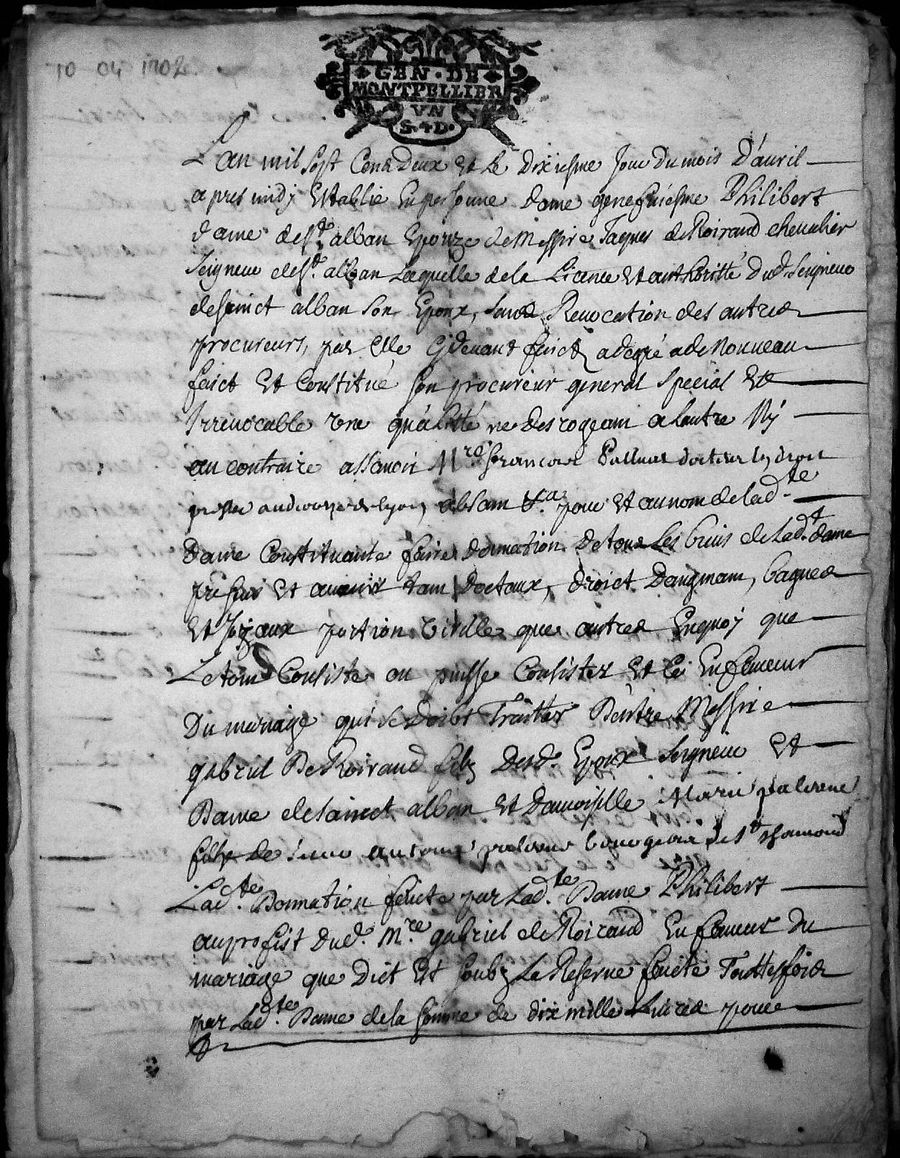 10 04 1702
GEN · DE
MONTPELLIER
VN
S. 4 D.
L'an mil sept Cens Deux Et Le dixiesme Jour Du mois D'auril
apres midy Establie En personne dame geneficiesme Philibert
dame de st. alban Epouze de Messire Jaques de Roiraud cheualier
Seigneur de st. alban Laquelle de la Licence Et authoritté dud. Seigneur
de sainct alban son Epoux, sans Reuocation des autres
procureurs, par Elle Cydeuant faicts a de gré a de Nouueau
faict Et Constitué son procureur general special Et
Irreuocable Une quallitté ne desrogeant a lautre Ny
au contraire assauoir Mre. francois docteur Es droit
absant pour Et au nom de lad.te
Dame Constituante faire donnation de tous Les biens de Lad.te dame
presens Et auenir tant doctaux, droict Daugmant, bagues
Et Joyaux portion Virille que autres Enquoy que
Le tout Consiste ou puisse Consister Et Ce En faueur
Du mariage qui se doibt Traitter Dentre Messire
gabriel De Roiraud fils Desd. Epoux Seigneur Et
Dame de sainct alban Et damoiselle Marie palerne
fille de feu antoine palerne bourgeois de St. chamond
Lad.te Donnation faicte par Lad.te Dame Philibert
au profist dud. Mre. gabriel de Roiraud En faueur du
mariage que Dict Est soubz La Reserue faicte Touttesfois
par Lad.te Dame de la somme de dix mille Liures pour